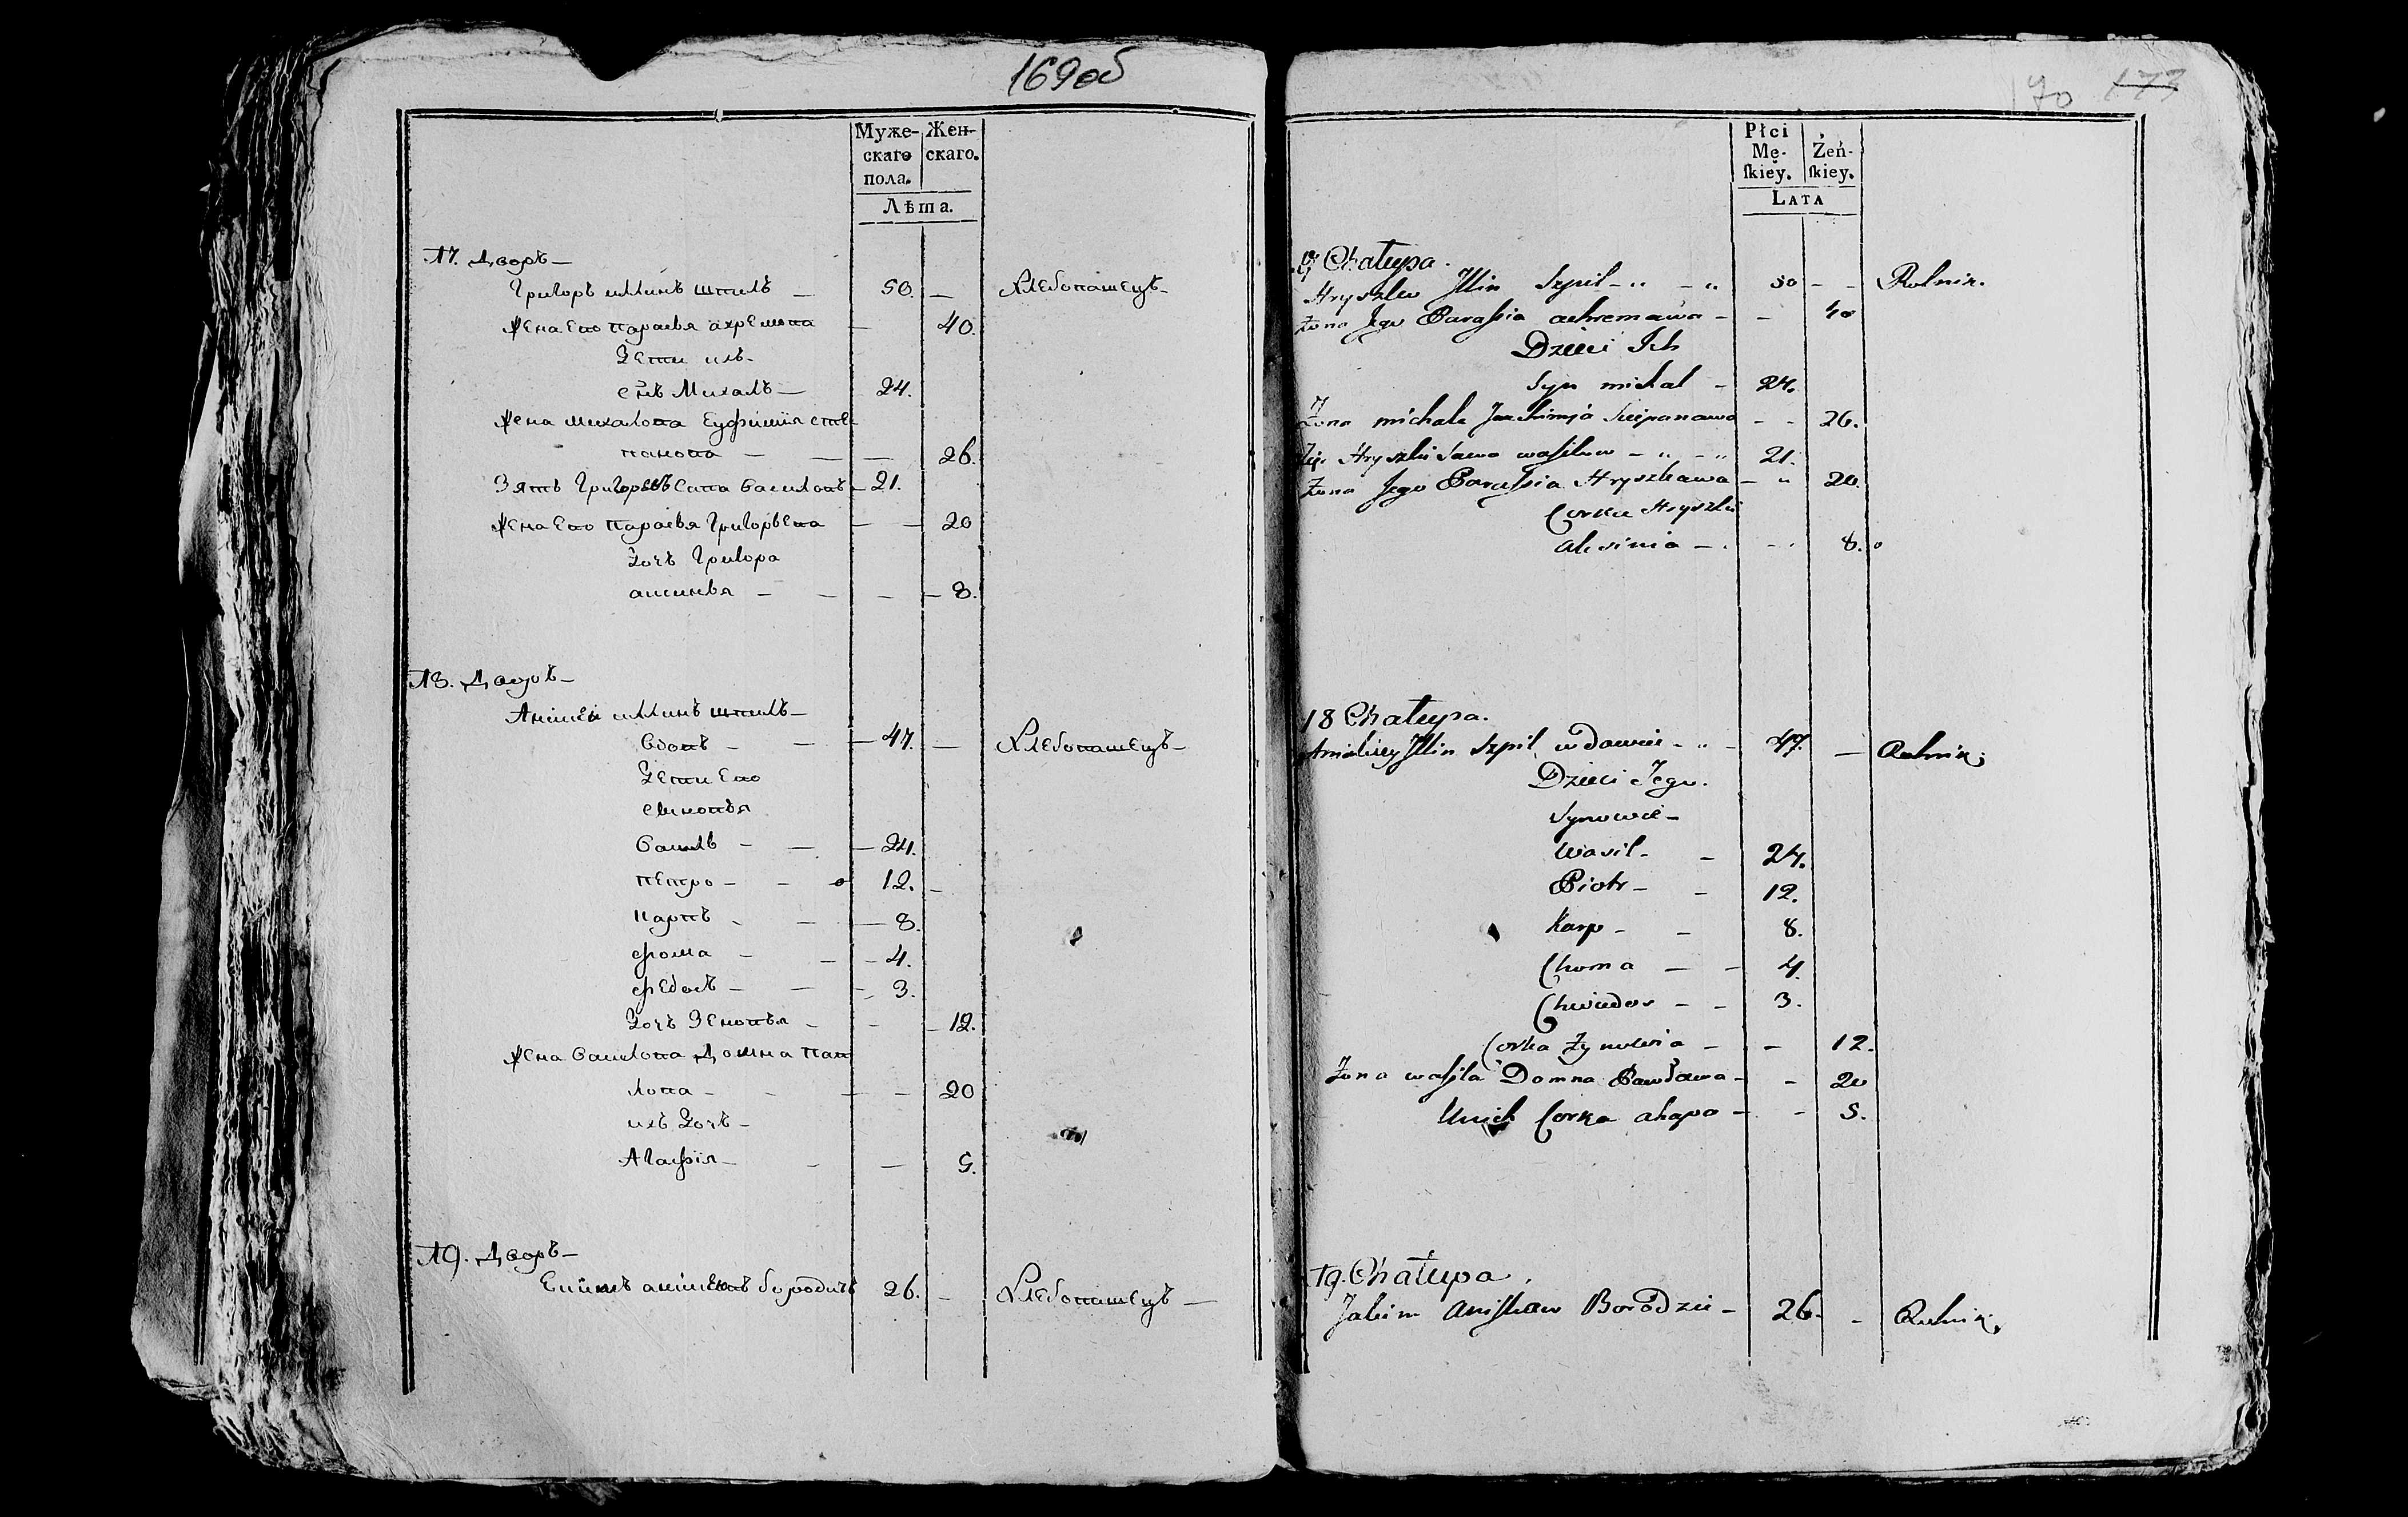 169 об
Муже- Жен-
скаго скаго.
пола.
Лѣта.
17. Дворъ —
Григоръ иллинъ шпиль — 50. — Хлебопашецъ —
Жена Его парасья ахремова — 40.
Дети ихъ —
снъ Михалъ — 24.
Жена михалова Еуфимия сте-
панова — — — 26.
Зять Григоровъ сава василовъ — 21.
Жена Его парасья Григорьева — — 20
Дочъ Григора
аксинья — — — — 8.
18. Дворъ —
Анисей иллинъ шпиль —
вдовъ — — — 47. — Хлебопашецъ —
Дети Его
синовья
василь — — — 24.
петро — — 12. —
карпъ — — — 8.
фома — — — 4.
федосъ — — — 3.
Дочъ Зеновья — — — 12.
Жена василова Домна пав-
лова — — — — 20
ихъ Дочъ —
Агафія — — — 5.
19. Дворъ —
Екимъ анисковъ бородичъ 26. — Хлебопашецъ —
170 173
Płci
Mę- Żeń-
ſkiey. ſkiey.
LATA
17 Chałupa.
Hryszko Illin Szpil — 50 — — Rolnik.
Żona Jego Parassia achremawa — — 40
Dzieci Ich
Syn michal — 24.
Żona michala Jauchimja Sciepanawa — — 26.
Zięć Hryszki Sawa wasilow — 21.
Żona Jego Parassia Hryszkawa — 20.
Corka Hryszki
Aksinia — — 8.
18 Chałupa.
Anisiey Illin Szpil wdowiec — 47. — Rolnik.
Dzieci Jego.
Synowie —
Wasil — — 24.
Piotr — — 12.
Karp — — 8.
Choma — — 4
Chwiedos — — 3.
Corka Zynowia — — 12.
Żona wasila Domna Pawława — — 20
Unich Corka ahapa — — 5.
19. Chałupa.
Jakim Aniskow Borodzic — 26. — Rolnik.